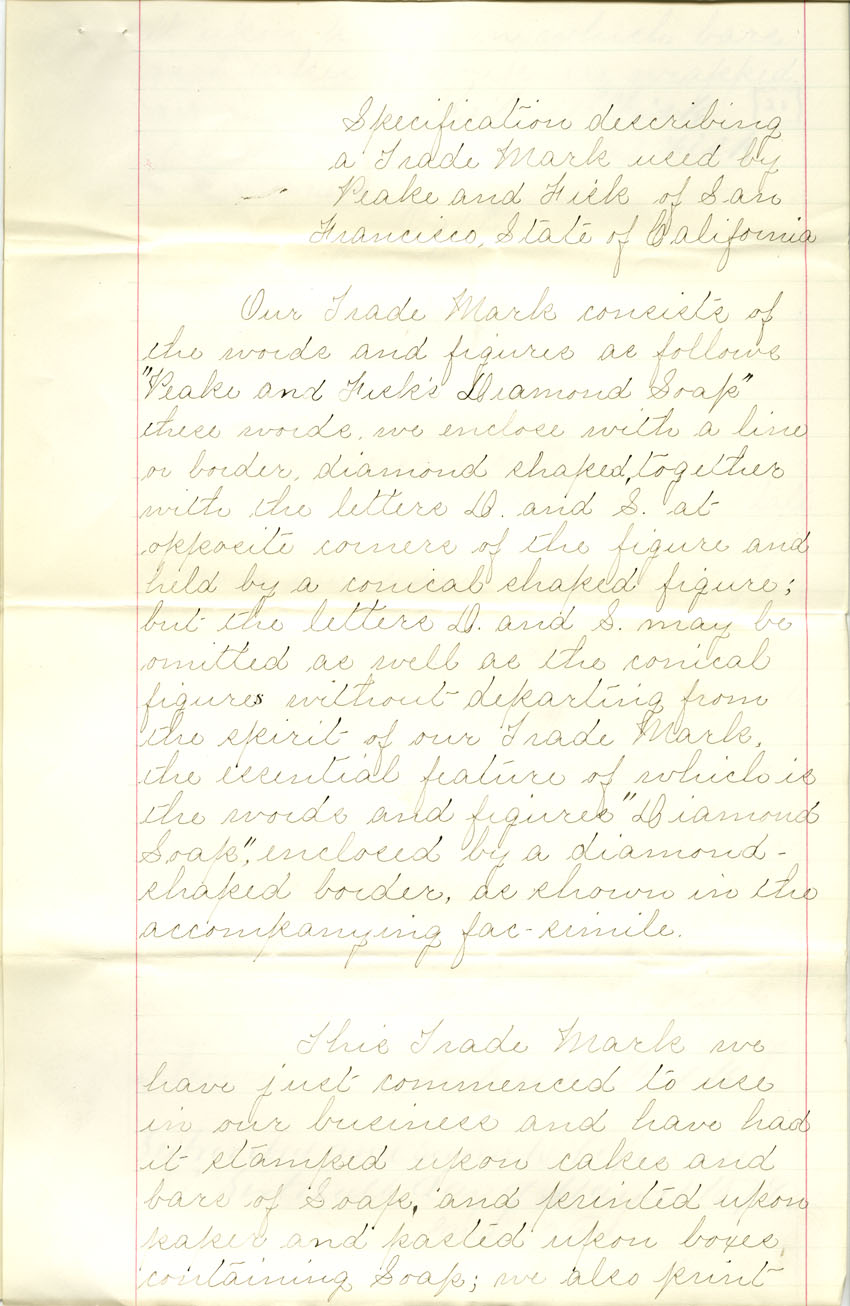 Specification describing
a Trade Mark used by
Peake and Fisk of San
Francisco, State of California
Our Trade Mark consists of
the words and figures as follows
"Peake and Fisk's Diamond Soap"
these words, we enclose with a line
or border, diamond shaped, together
with the letters D. and S. at
opposite corners of the figure and
held by a conical shaped figure;
but the letters D. and S. may be
omitted as well as the conical
figures without departing from
the spirit of our Trade Mark,
the essential feature of which is
the words and figures "Diamond
Soap", enclosed by a diamond-
shaped border, as shown in the
accompanying fac-simile.
This Trade Mark we
have just commenced to use
in our business and have had
it stamped upon cakes and
bars of Soap, and printed upon
paper and pasted upon boxes,
containing Soap; we also print